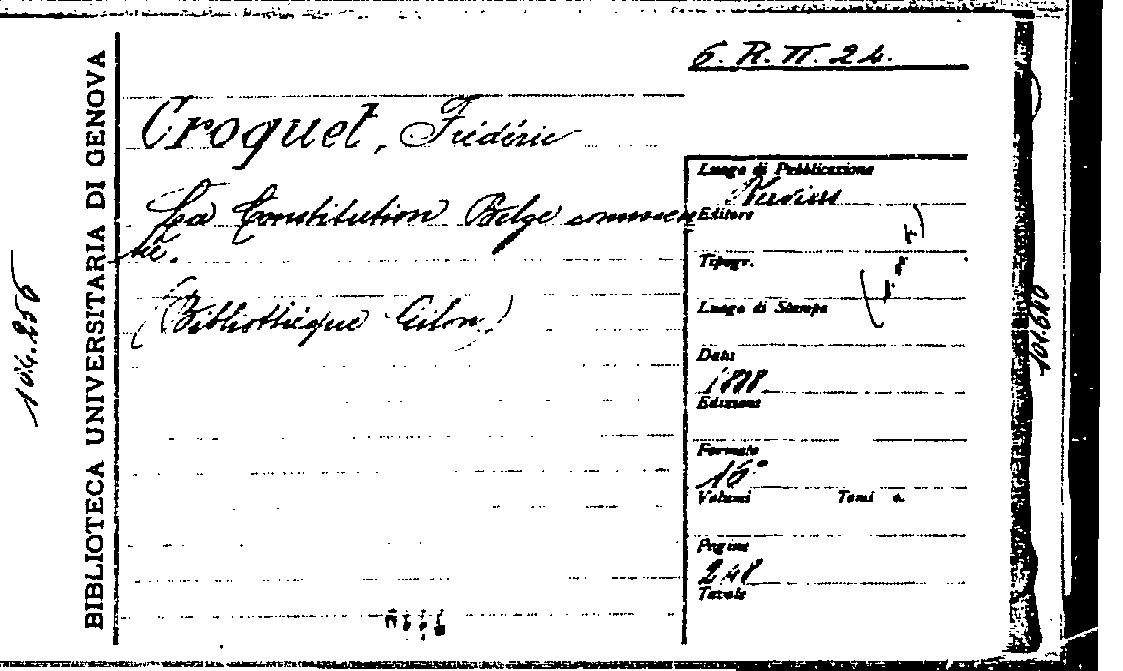 6. R. II. 24.
BIBLIOTECA UNIVERSITARIA DI GENOVA
Croquet, Frédéric
La Constitution Belge commen-
tée.
(Bibliothèque Gilon)
Luogo di Pubblicazione
Verviers
Editore
Tipogr.
Luogo di Stampa
Data
Edizione
Formato
16°
Volumi Tomi
Pagine
248
Tavole
104.256
101.640